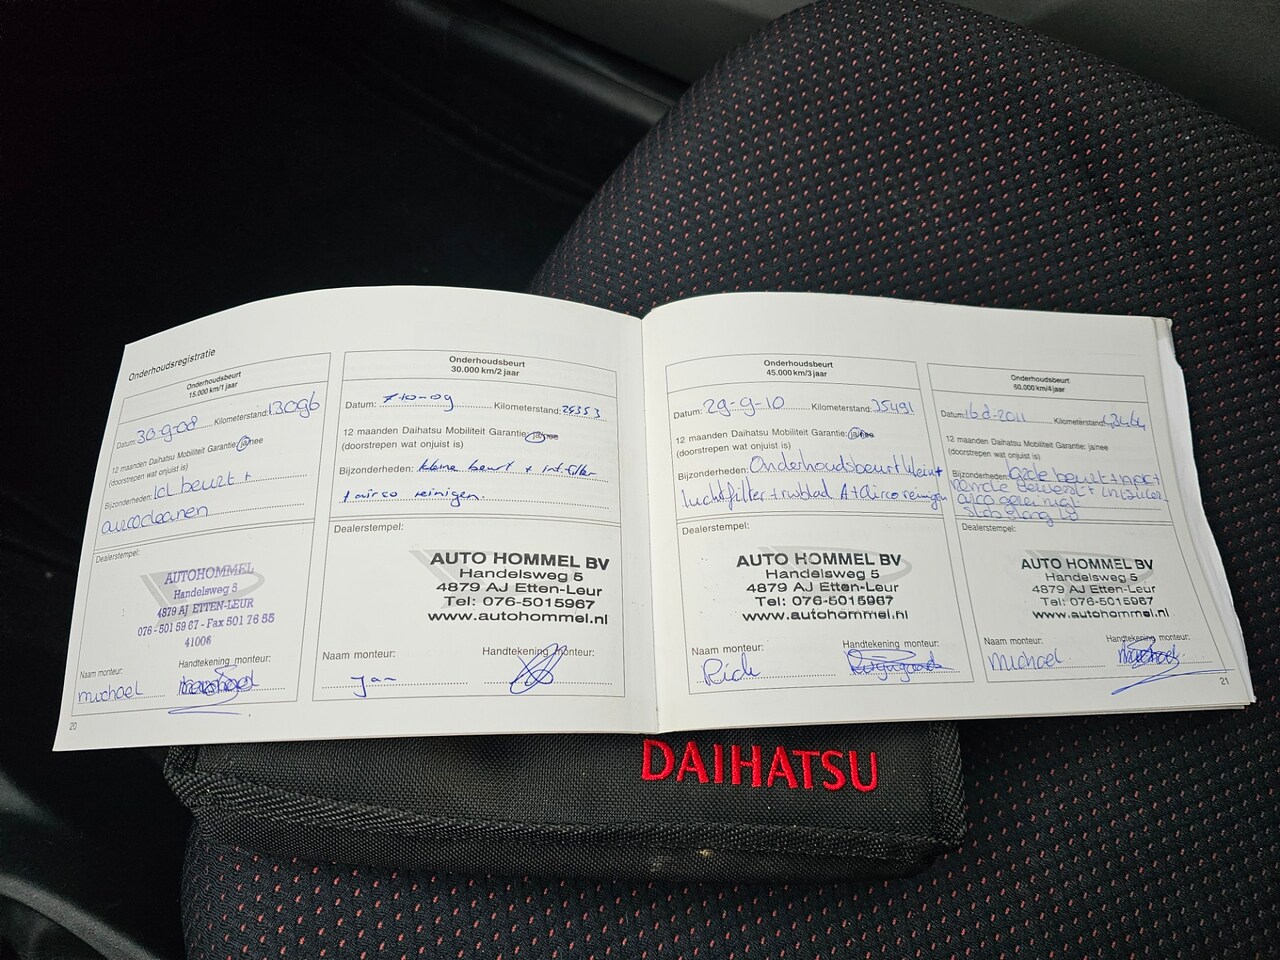 Onderhoudsregistratie
Onderhoudsbeurt
15.000 km/1 jaar
Datum: 30-9-08 Kilometerstand: 13096
12 maanden Daihatsu Mobiliteit Garantie: ja/nee
(doorstrepen wat onjuist is)
Bijzonderheden: 1ct beurt +
aircocleanen
Dealerstempel:
AUTOHOMMEL
Handelsweg 5
4879 AJ ETTEN-LEUR
076 - 501 59 67 - Fax 501 76 55
41006
Naam monteur: Handtekening monteur:
michael
20
Onderhoudsbeurt
30.000 km/2 jaar
Datum: 7-10-09 Kilometerstand: 24353
12 maanden Daihatsu Mobiliteit Garantie: ja/nee
(doorstrepen wat onjuist is)
Bijzonderheden: kleine beurt + int.filter
+ airco reinigen.
Dealerstempel:
AUTO HOMMEL BV
Handelsweg 5
4879 AJ Etten-Leur
Tel: 076-5015967
www.autohommel.nl
Naam monteur: Handtekening monteur:
Jan
Onderhoudsbeurt
45.000 km/3 jaar
Datum: 29-9-10 Kilometerstand: 35491
12 maanden Daihatsu Mobiliteit Garantie: ja/nee
(doorstrepen wat onjuist is)
Bijzonderheden: Onderhoudsbeurt klein+
luchtfilter + ruitblad A + Airco reinigen
Dealerstempel:
AUTO HOMMEL BV
Handelsweg 5
4879 AJ Etten-Leur
Tel: 076-5015967
www.autohommel.nl
Naam monteur: Handtekening monteur:
Rick
Onderhoudsbeurt
60.000 km/4 jaar
Datum: Kilometerstand:
12 maanden Daihatsu Mobiliteit Garantie: ja/nee
(doorstrepen wat onjuist is)
Bijzonderheden: beurt +
airco gereinigd
Dealerstempel:
AUTO HOMMEL BV
Handelsweg 5
4879 AJ Etten-Leur
Tel: 076-5015967
www.autohommel.nl
Naam monteur: Handtekening monteur:
michael
21
DAIHATSU